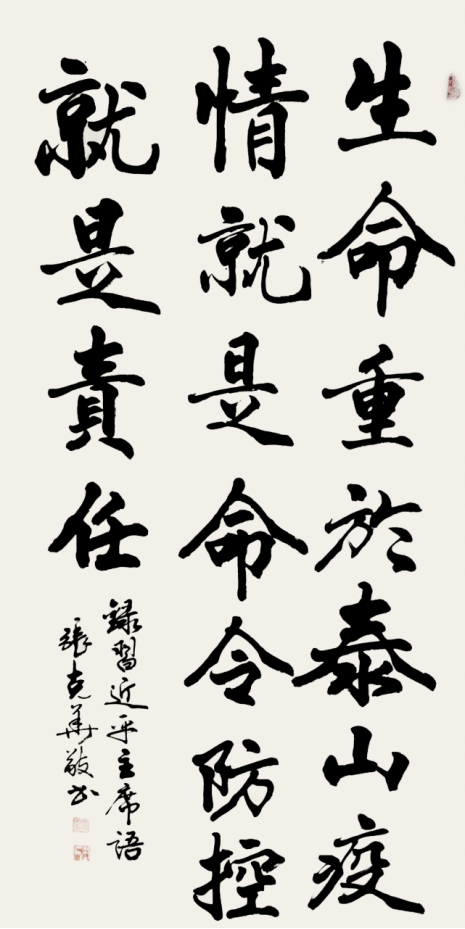 生命重於泰山疫
情就是命令防控
就是責任
録習近平主席語
張克華敬书